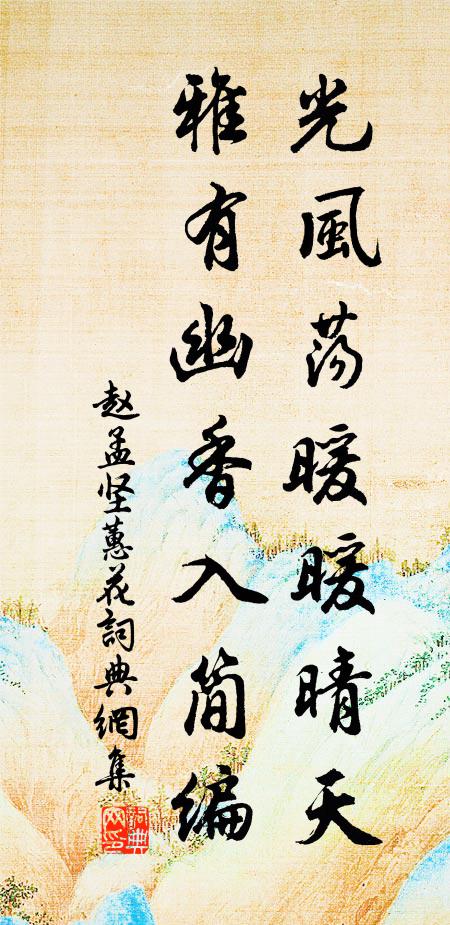 光風荡暖暖晴天
雅有幽香入简編
赵孟坚蕙花詞典網集
詞典
网印